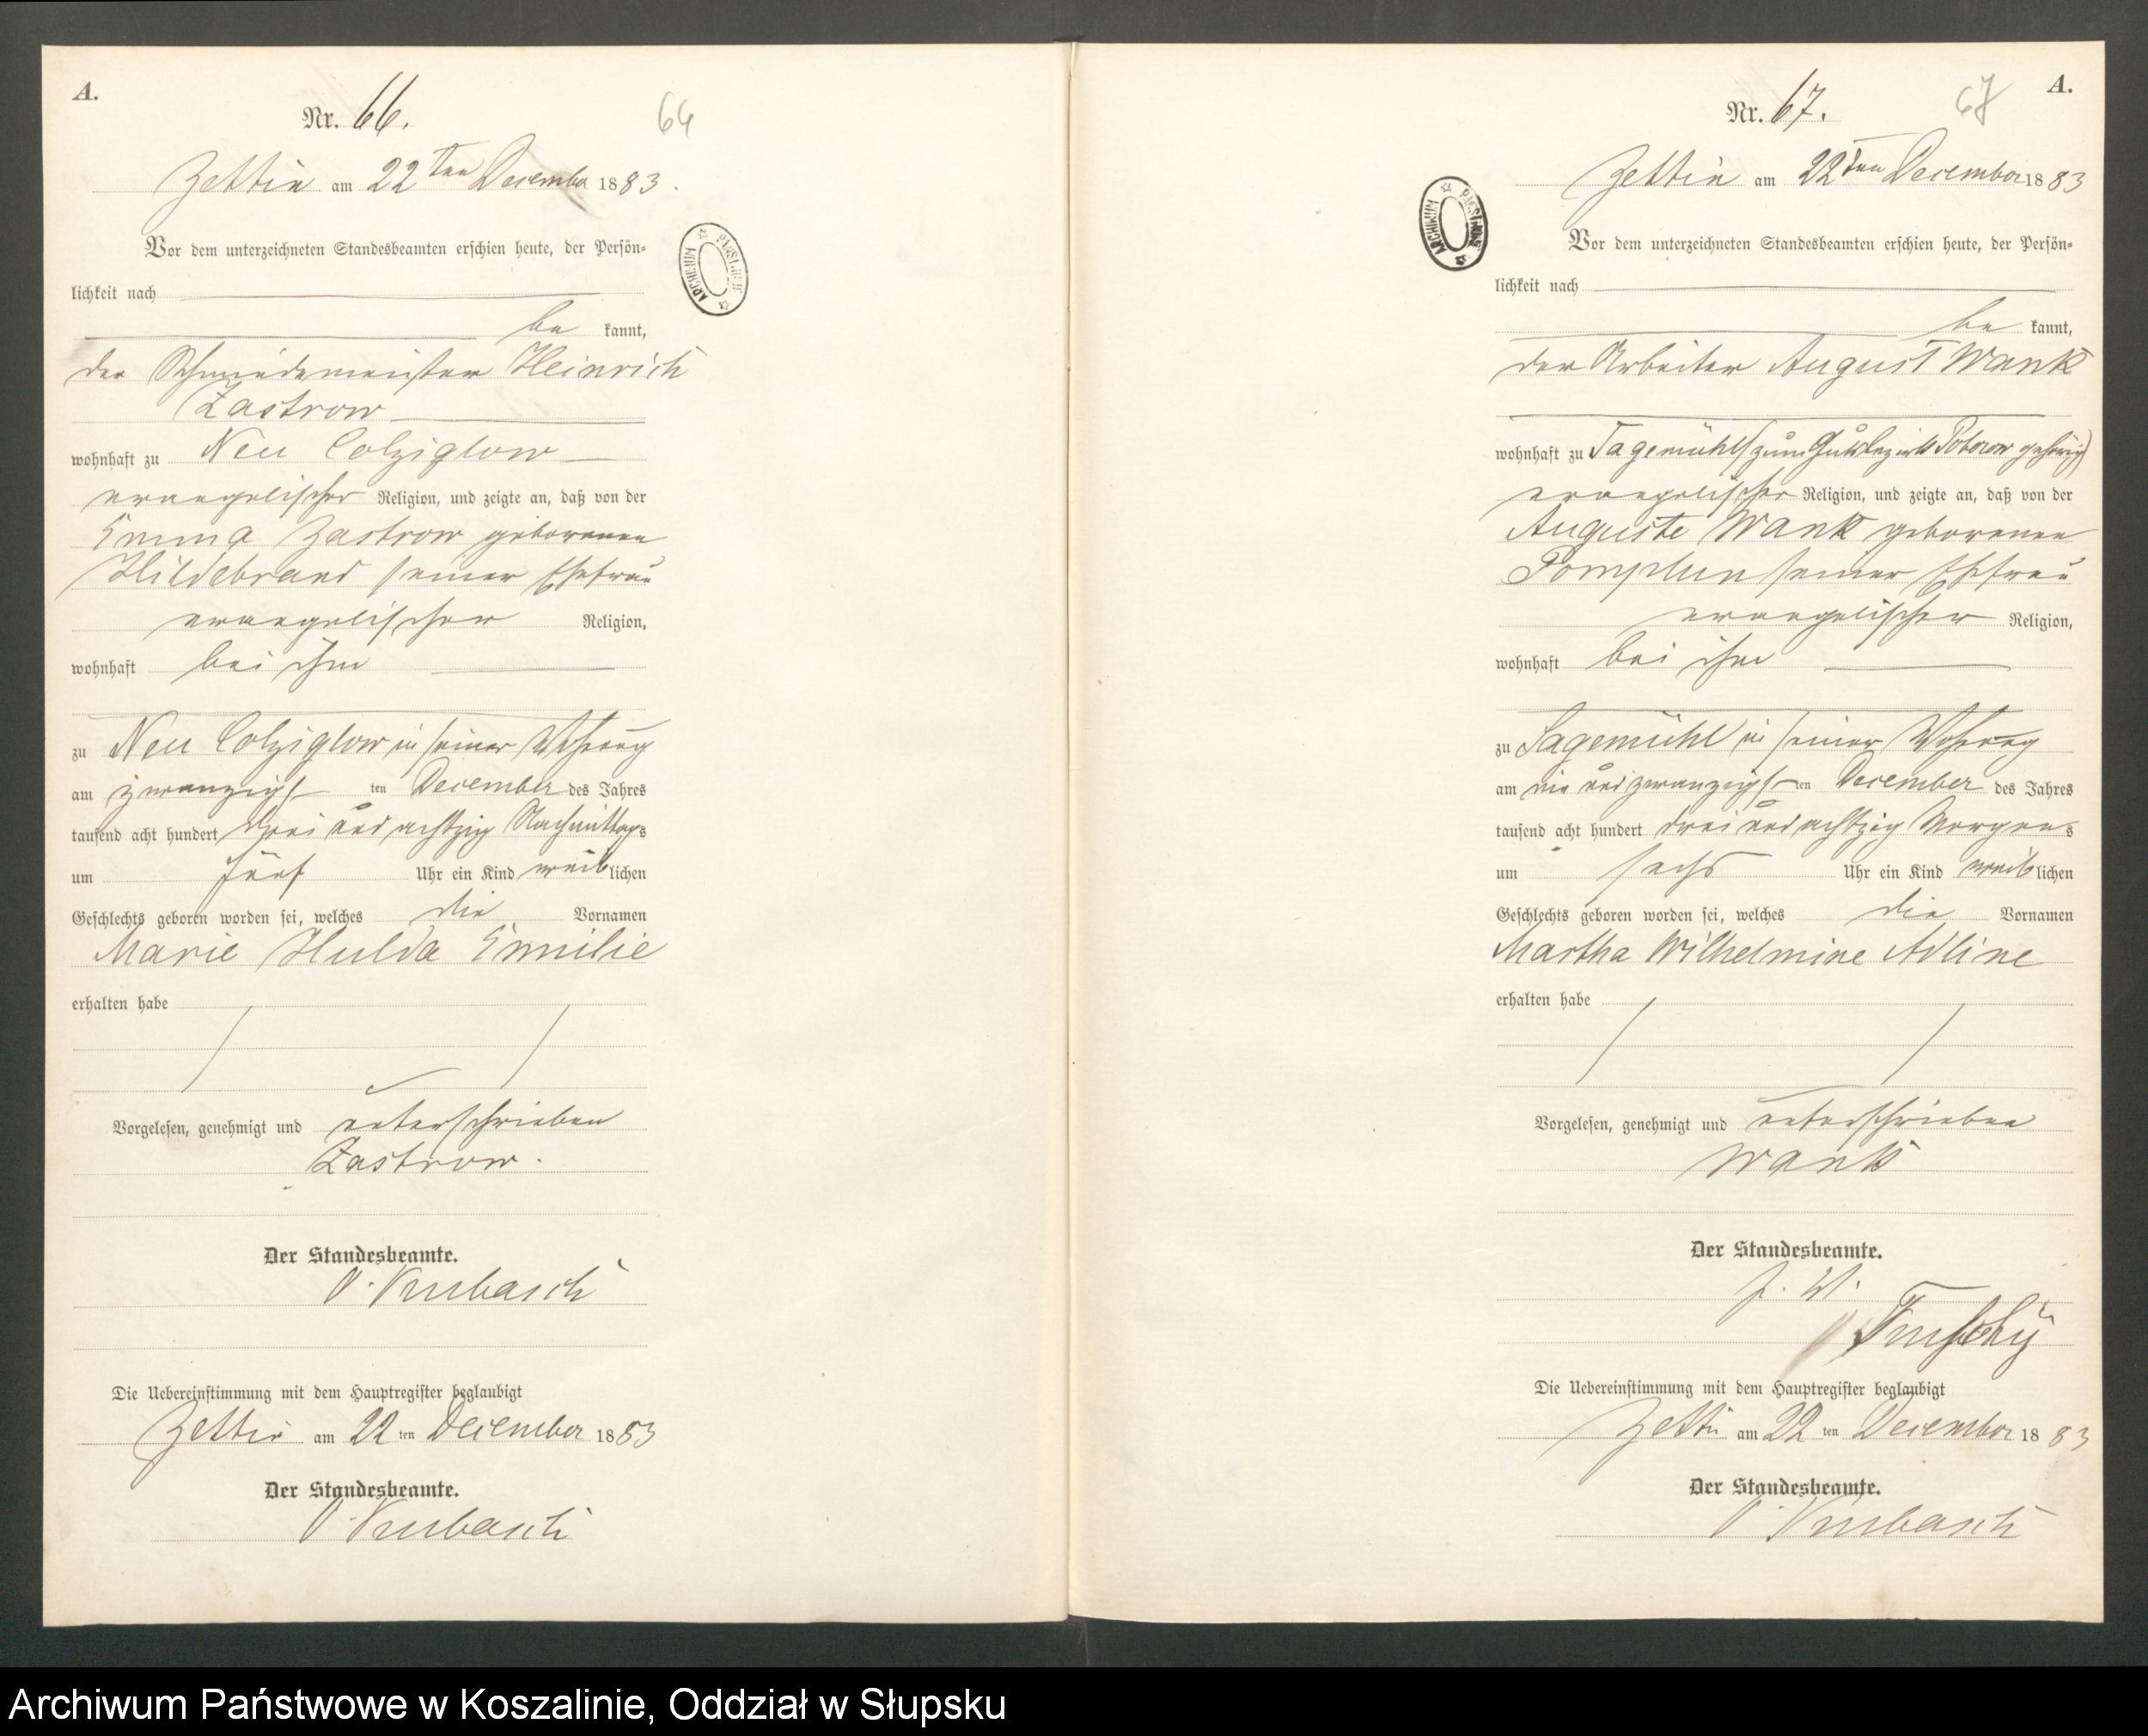 A.
Nr. 66.
64
Zettin am 22ten December 1883.
Vor dem unterzeichneten Standesbeamten erschien heute, der Persön-
lichkeit nach
be kannt,
der Schmiedemeister Heinrich
Zastrow
wohnhaft zu Neu Colziglow
evangelischer Religion, und zeigte an, daß von der
Emma Zastrow geborenen
Hildebrand seiner Ehefrau
evangelischer Religion,
wohnhaft bei ihm
zu Neu Colziglow in seiner Wohnung
am zwanzigs ten December des Jahres
tausend acht hundert drei und achtzig Nachmittags
um fünf Uhr ein Kind weiblichen
Geschlechts geboren worden sei, welches die Vornamen
Marie Hulda Emilie
erhalten habe
Vorgelesen, genehmigt und unterschrieben
Zastrow.
Der Standesbeamte.
Die Uebereinstimmung mit dem Hauptregister beglaubigt
Zettin am 22 ten December 1883
Der Standesbeamte.
ARCHIWUM PAŃSTWOWE
A.
Nr. 67.
67
Zettin am 22ten December 1883
Vor dem unterzeichneten Standesbeamten erschien heute, der Persön-
lichkeit nach
be kannt,
der Arbeiter August Wank
wohnhaft zu Sagemühl (zum Gutsbezirk gehörig)
evangelischer Religion, und zeigte an, daß von der
Auguste Wank geborenen
Pomplun seiner Ehefrau
evangelischer Religion,
wohnhaft bei ihm
zu Sagemühl in seiner Wohnung
am ein und zwanzigs ten December des Jahres
tausend acht hundert drei und achtzig Morgens
um sechs Uhr ein Kind weiblichen
Geschlechts geboren worden sei, welches die Vornamen
Martha Wilhelmine Adline
erhalten habe
Vorgelesen, genehmigt und unterschrieben
Wank
Der Standesbeamte.
Die Uebereinstimmung mit dem Hauptregister beglaubigt
Zettin am 22 ten December 1883
Der Standesbeamte.
ARCHIWUM PAŃSTWOWE
Archiwum Państwowe w Koszalinie, Oddział w Słupsku